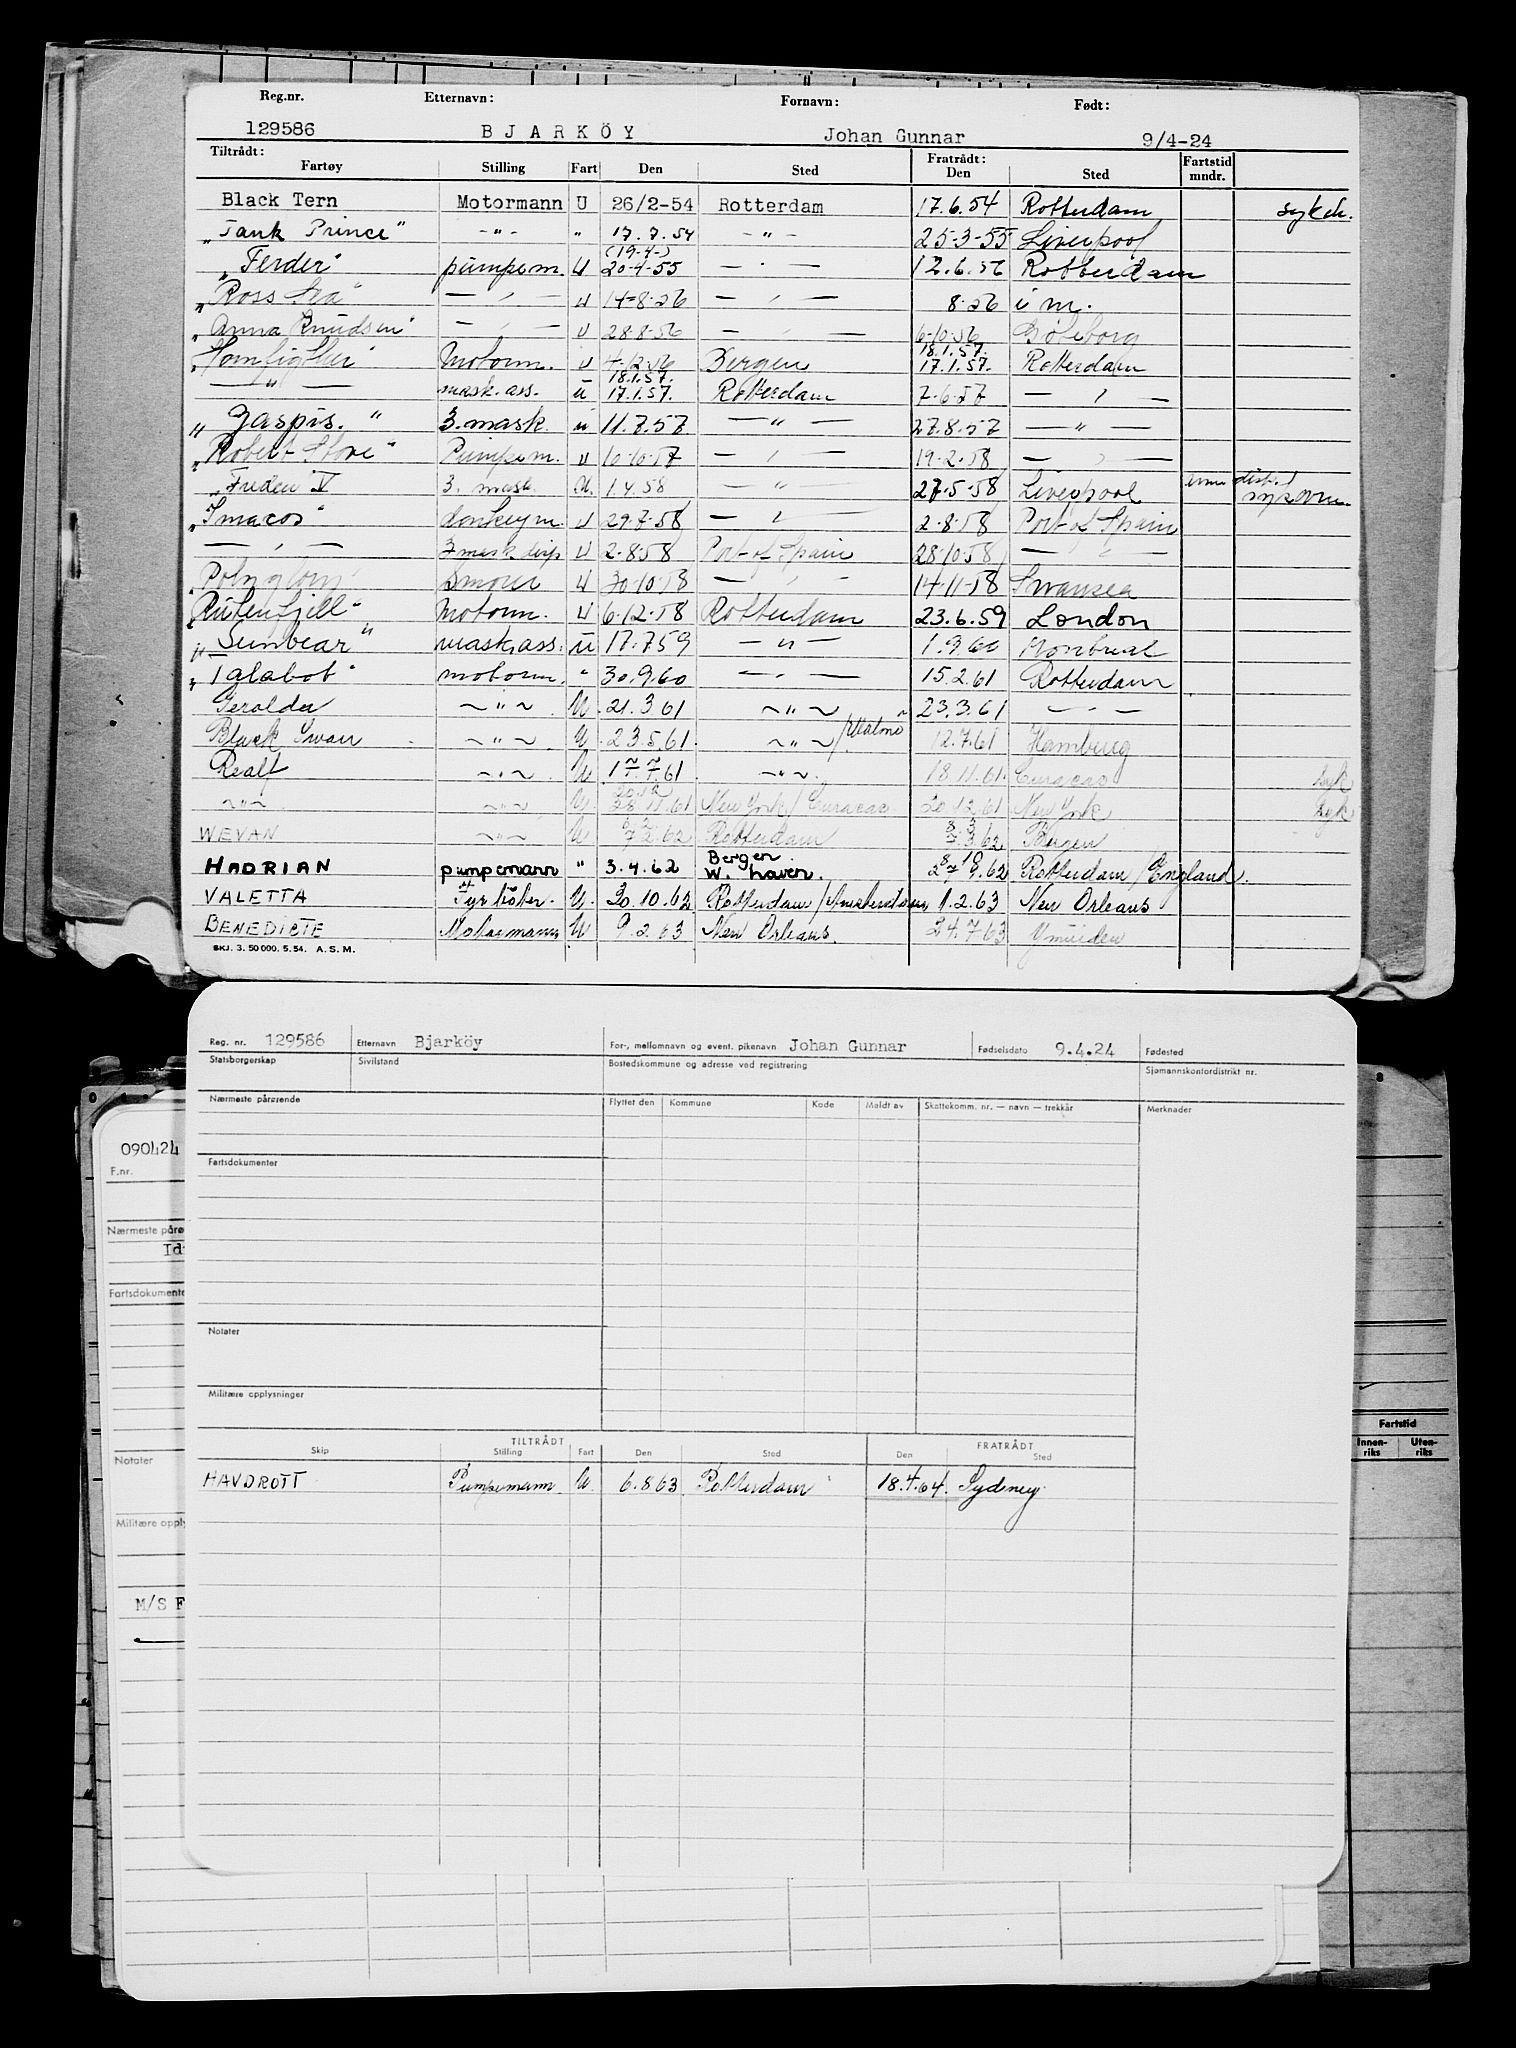 Reg.nr. Etternavn: Fornavn: Født:
129586 BJARKÖY Johan Gunnar 9/4-24
Tiltrådt: Fratrådt: Fartstid
Fartøy Stilling Fart Den Sted Den Sted mndr.
Black Tern Motormann U 26/2-54 Rotterdam 17.6.54 Rotterdam sykeh.
"Tank Prince" -"- " 17.7.54 -"- 25-3-55 Liverpool
(19-4-)
"Ferder" pumpem. U 20-4-55 -"- 12.6.56 Rotterdam
"Ross Sea" -"- U 14-8-56 -"- 8-56 i m.
"Anna Knudsen" -"- U 28-8-56 -"- 6-10-56 Göteborg
18.1.57.
Motorm. U 4-12-56 Bergen 17.1.57. Rotterdam
18.1.57.
-"- mask.ass. U 17.1.57. Rotterdam 7-6-57 -"-
"Gaspis." 3.mask. U 11.7.57 -"- 27.8.57 -"-
"Robert Stove" Pumpem. U 10-10-57 -"- 19-2-58 -"-
"Freden V" 3. mask. U. 1.4.58 -"- 27-5-58 Liverpool
"Imacos" donkeym. U 29-7-58 -"- 2-8-58 Port of Spain
-"- 3 mask disp U 2-8-58 Port of Spain 28-10-58 -"-
"Polyglory" Smører U 30-10-58 -"- 14-11-58 Swansea
"Rutenfjell" Motorm. U 6-12-58 Rotterdam 23.6.59 London
"Sunbear" mask.ass. U 17.7.59 -"- 1.9.60 Montreal
"Talabot" motorm. " 30.9.60 -"- 15.2.61 Rotterdam
Geralder ~"~ U. 21.3.61 ~"~ 23.3.61 -"-
Black Swan ~"~ U. 23.5.61. ~"~/Malmö 12.7.61 Hamburg
Realf ~"~ U 17.7.61 ~"~. 18.11.61. Curacao syk
~"~ ~"~ U. 28.11.61 New York/Curacao 20.12.61 New York syk
WEVAN ~"~ U 7.2.62 Rotterdam 7.3.62 Bergen
HADRIAN pumpemann " 3.4.62 Bergen W. haven. Rotterdam/England.
VALETTA Fyrböter. U. 30.10.62 Rotterdam/Amsterdam 1.2.63 New Orleans
BENEDICTE Motormann U 9.2.63 New Orleans. 24.7.63 Ymuiden
SKJ. 3. 50 000. 5. 54. A.S.M.
Reg. nr. 129586 Etternavn Bjarköy For-, mellomnavn og event. pikenavn Johan Gunnar Fødselsdato 9.4.24 Fødested
Statsborgerskap Sivilstand Bostedskommune og adresse ved registrering Sjømannskontordistrikt nr.
Nærmeste pårørende Flyttet den Kommune Kode Meldt av Skattekomm. nr. — navn — trekkår Merknader
090424
F.nr.
Fartsdokumenter
Nærmeste påre
Fartsdokumente
Notater
Militære opplysninger
Fartstid
Innen-riks Uten-riks
TILTRÅDT FRATRÅDT
Skip Stilling Fart Den Sted Den Sted
Notater
HAVDROTT Pumpemann U. 6.8.63 Rotterdam 18.4.64. Sydney
Militære opply
M/S F